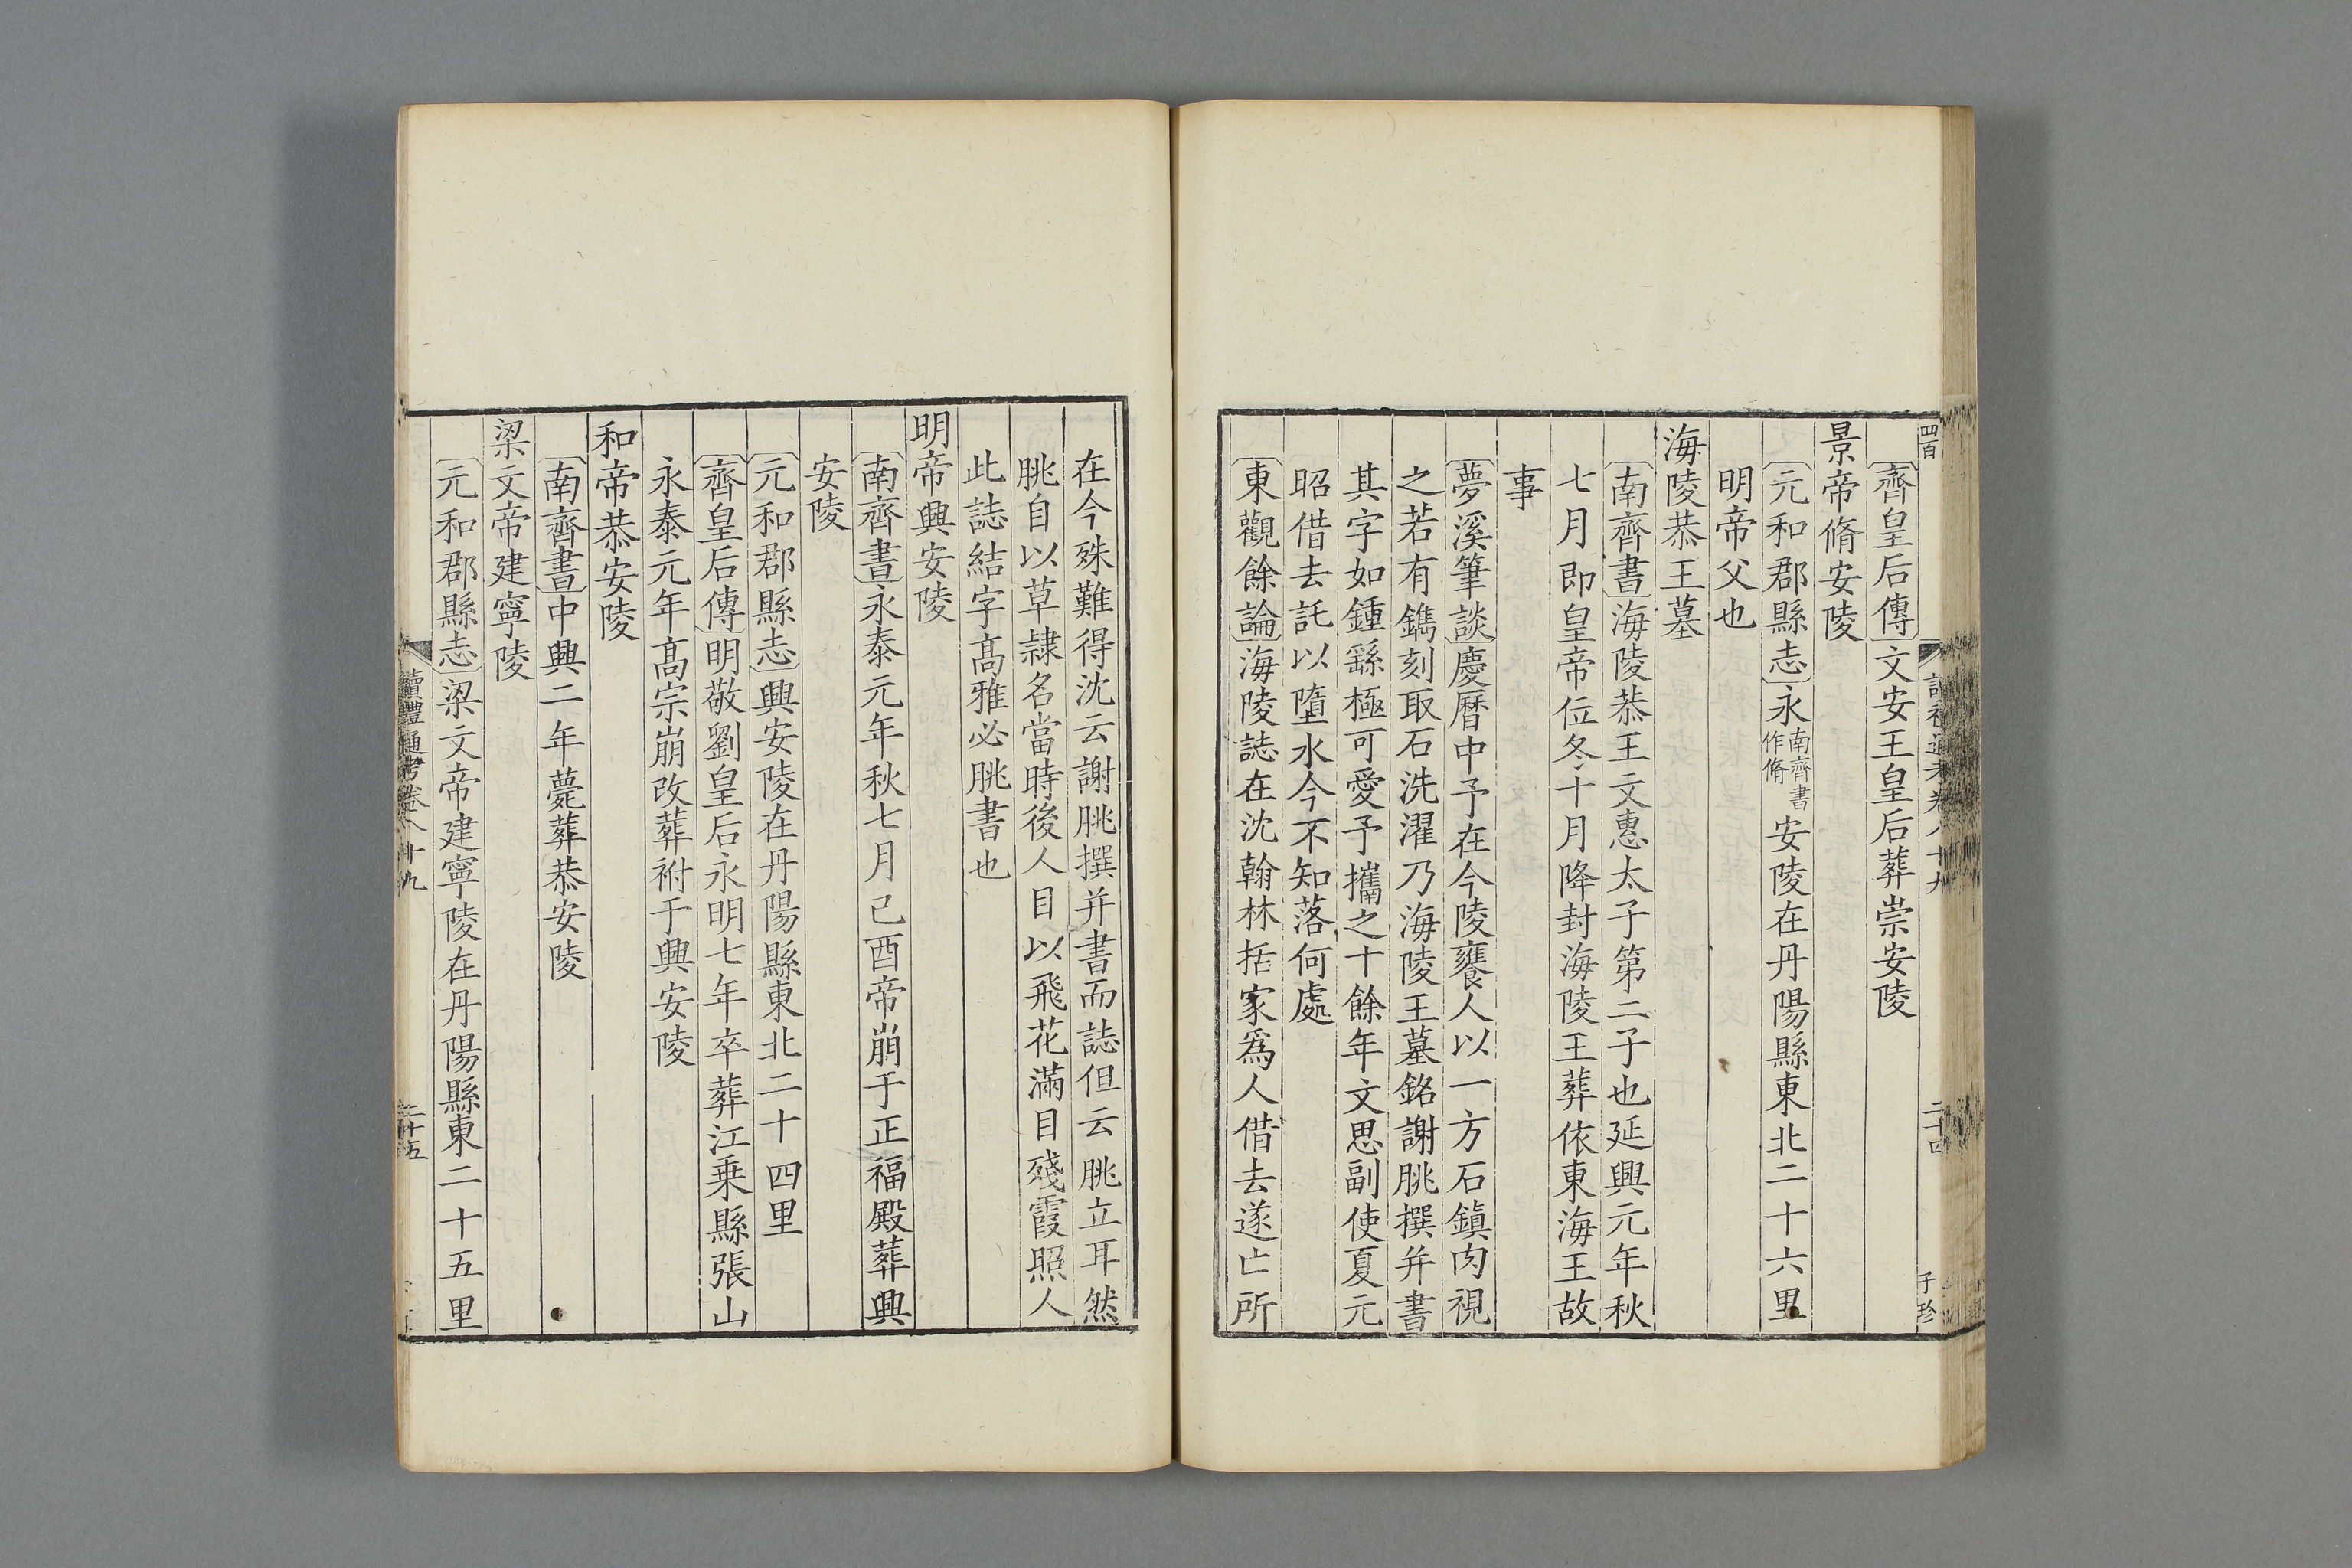 齊皇后傳文安王皇后葬崇安陵
景帝脩安陵
元和郡縣志永南齊書作脩安陵在丹陽縣東北二十六里
明帝父也
海陵恭王墓
南齊書海陵恭王文惠太子第二子也延興元年秋
七月即皇帝位冬十月降封海陵王葬依東海王故
事
夢溪筆談慶曆中予在今陵饔人以一方石鎮肉視
之若有鐫刻取石洗濯乃海陵王墓銘謝朓撰并書
其字如鍾繇極可愛予攜之十餘年文思副使夏元
昭借去託以墮水今不知落何處
東觀餘論海陵誌在沈翰林括家爲人借去遂亡所
二十四
子珍
四百
在今殊難得沈云謝朓撰并書而誌但云朓立耳然
朓自以草隷名當時後人目以飛花滿目殘霞照人
此誌結字髙雅必朓書也
明帝興安陵
南齊書永泰元年秋七月己酉帝崩于正福殿葬興
安陵
元和郡縣志興安陵在丹陽縣東北二十四里
齊皇后傳明敬劉皇后永明七年卒葬江乗縣張山
永泰元年髙宗崩改葬祔于興安陵
和帝恭安陵
南齊書中興二年薨葬恭安陵
梁文帝建寧陵
元和郡縣志梁文帝建寧陵在丹陽縣東二十五里
讀禮通考卷八十九
二十五